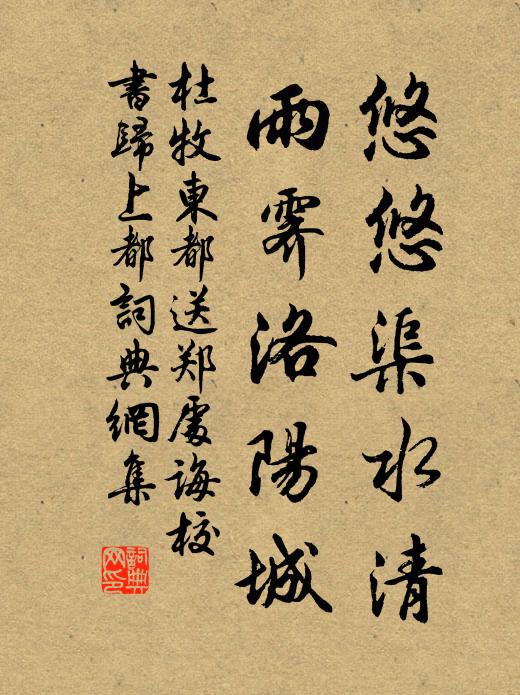 悠悠渠水清
雨霽洛陽城
杜牧東都送郑處誨校
書歸上都詞典網集
詞典
网印